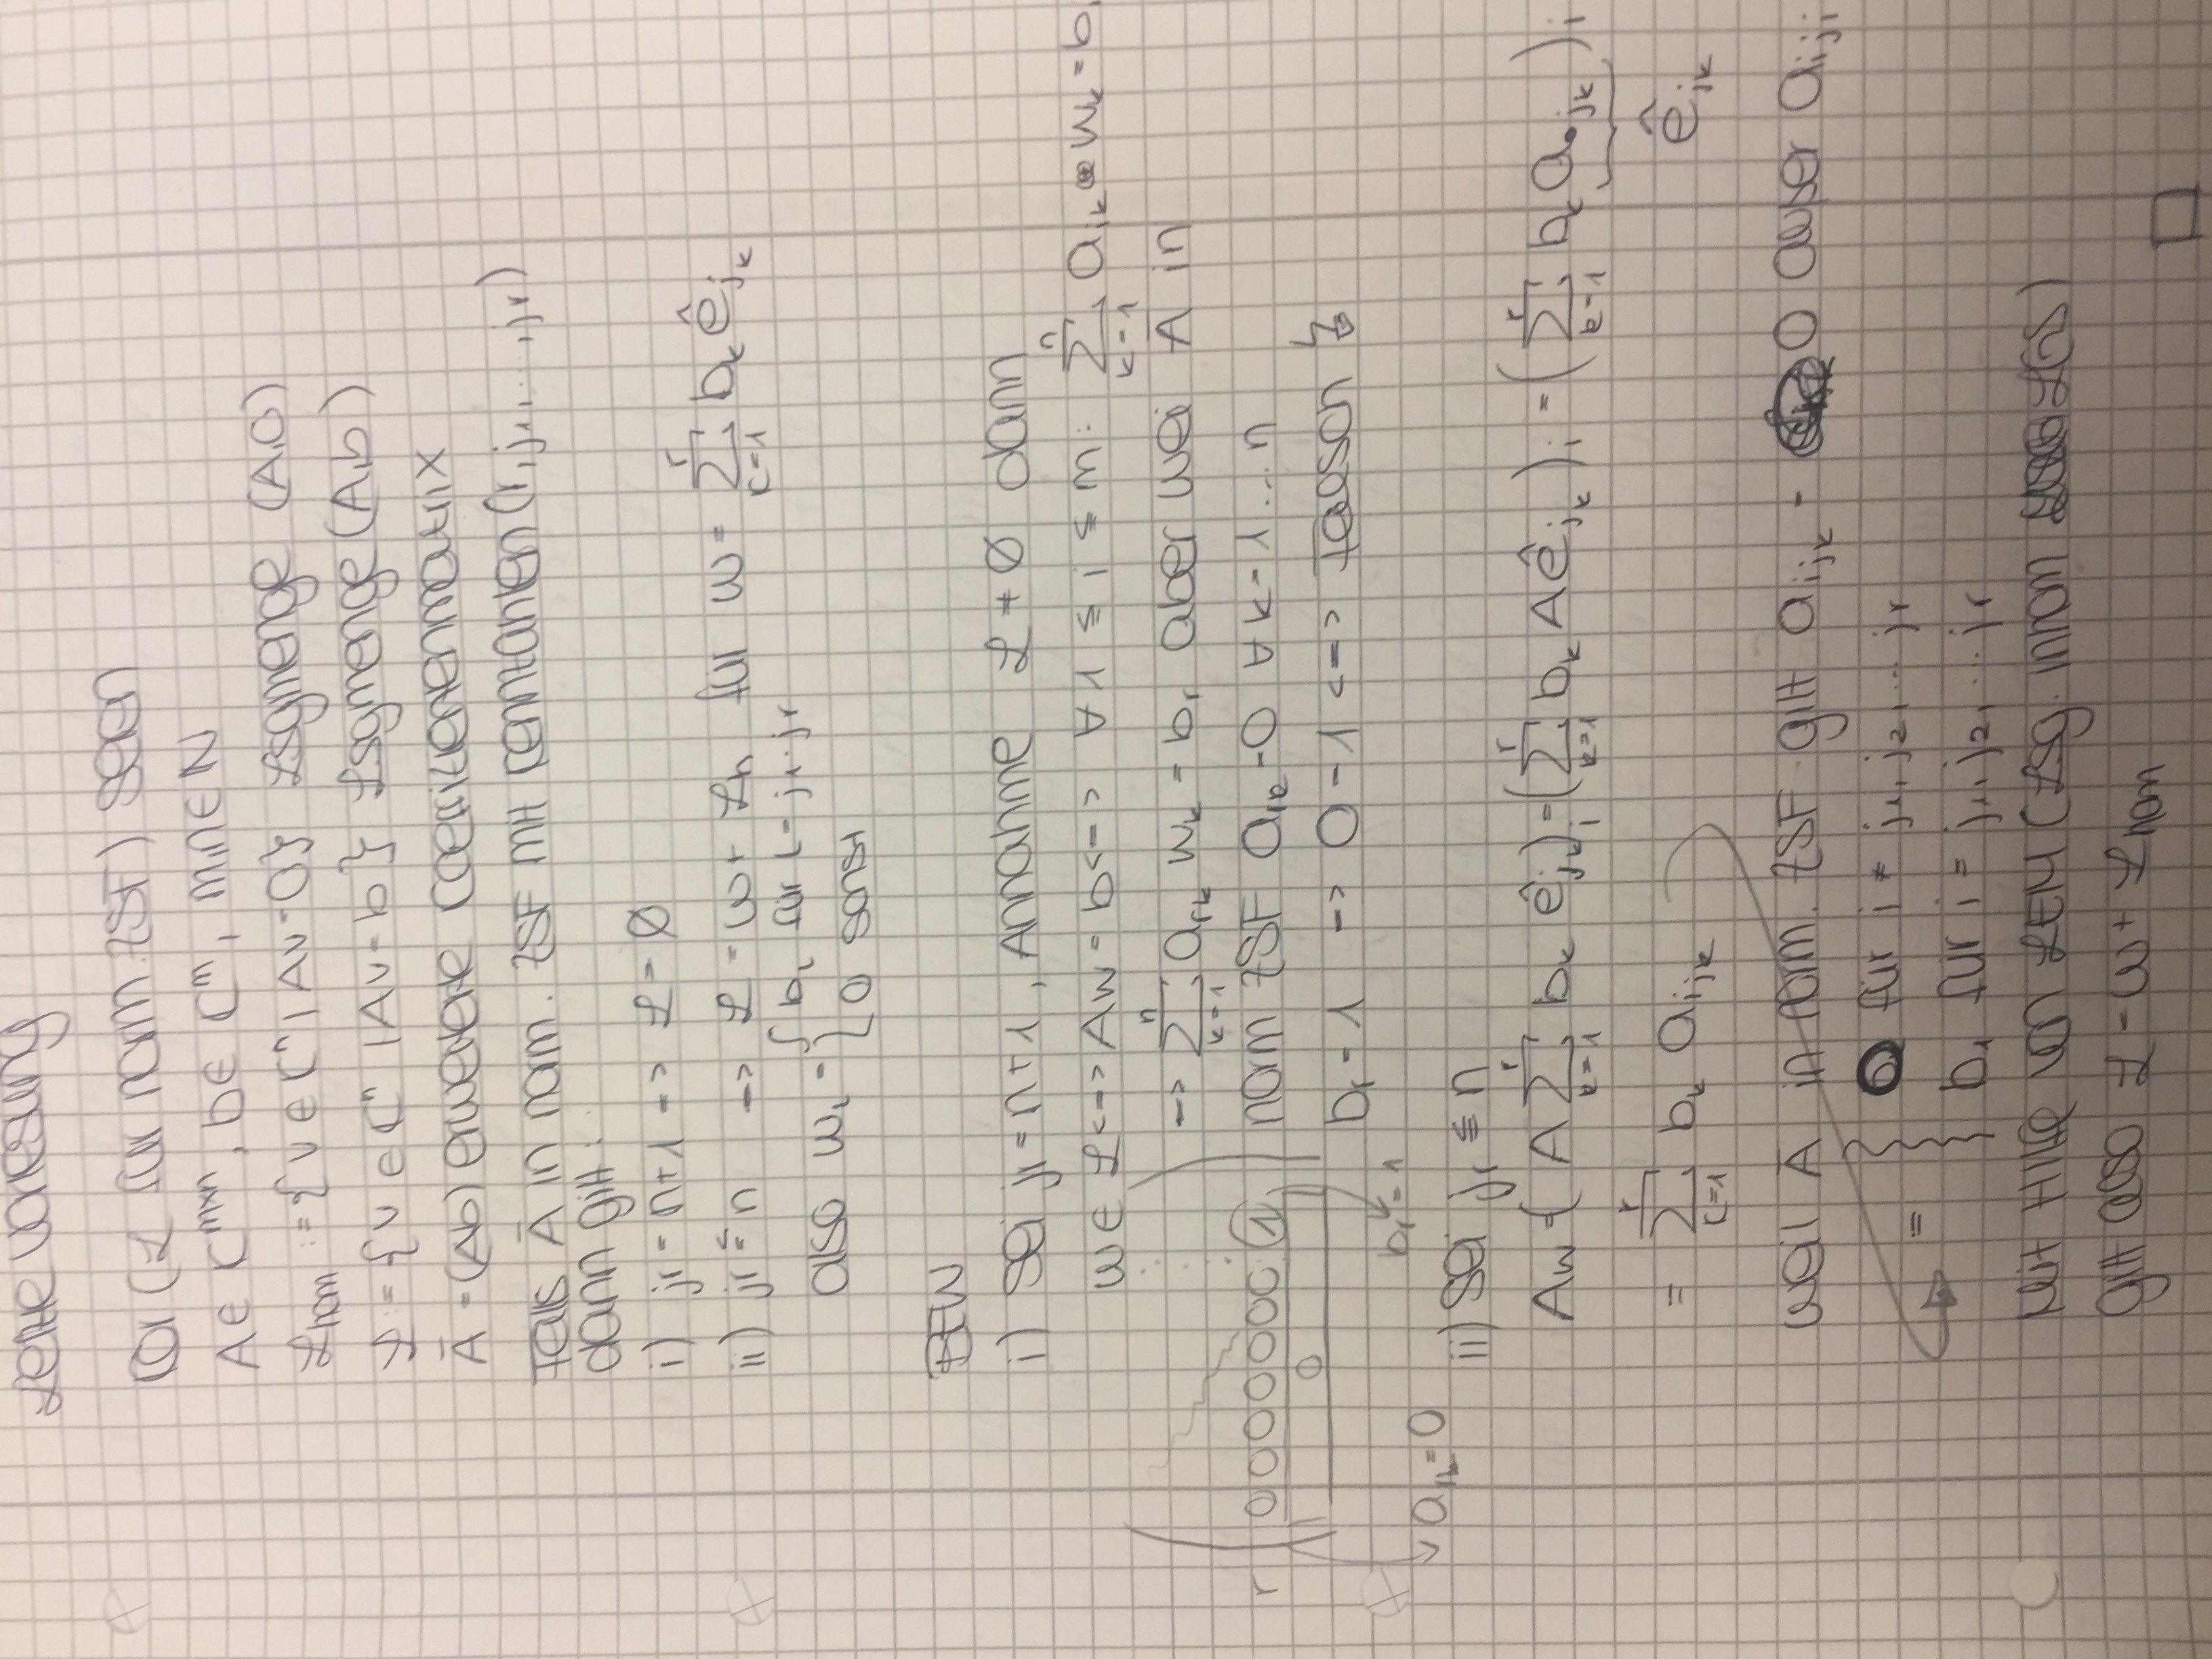 Letzte Vorlesung
Cor (L für norm. ZSF) seien
A ∈ C^{m×n}, b ∈ C^m, m,n ∈ N
L_hom := {v ∈ C^n | Av = 0} Lsgmenge (A,0)
L := {v ∈ C^n | Av = b} Lsgmenge (A,b)
Ā = (Ab) erweiterte Coeffizientenmatrix
Falls Ā in norm. ZSF mit Kennzahlen (r, j_1, ..., j_r)
dann gilt:
i) j_r = n+1 => L = ∅
ii) j_r ≤ n => L = w + L_h für w = ∑_{k=1}^{r} b_k ê_{j_k}
also w_i = { b_i für i = j_1..j_r
0 sonst
BEW
i) Sei j_r = n+1, Annahme L ≠ ∅ dann
w ∈ L <=> Aw = b <=> ∀ 1 ≤ i ≤ m: ∑_{k=1}^{n} a_{ik} w_k = b_i
=> ∑_{k=1}^{n} a_{rk} w_k = b_r aber weil Ā in
r 0 0 0 0 0 0 0 1 norm ZSF a_{rk} = 0 ∀ k = 1...n
0
b_r = 1 => 0 = 1 <=> Falsch ↯
b_r = 1
a_{rk} = 0
ii) Sei j_r ≤ n
Aw = (A ∑_{k=1}^{r} b_k ê_{j_k})_i = (∑_{k=1}^{r} b_k A ê_{j_k})_i = (∑_{k=1}^{r} b_k a_{•j_k})_i
ê_{jk}
= ∑_{k=1}^{r} b_k a_{ij_k}
weil Ā in norm. ZSF gilt a_{ij_k} = 0 außer a_{ij_i}
= { 0 für i ≠ j_1, j_2, ... j_r
b_i für i = j_1, j_2, ... j_r
Mit Hilfe von LEM (Lsg. inhom LGS)
gilt also L = w + L_hom
□